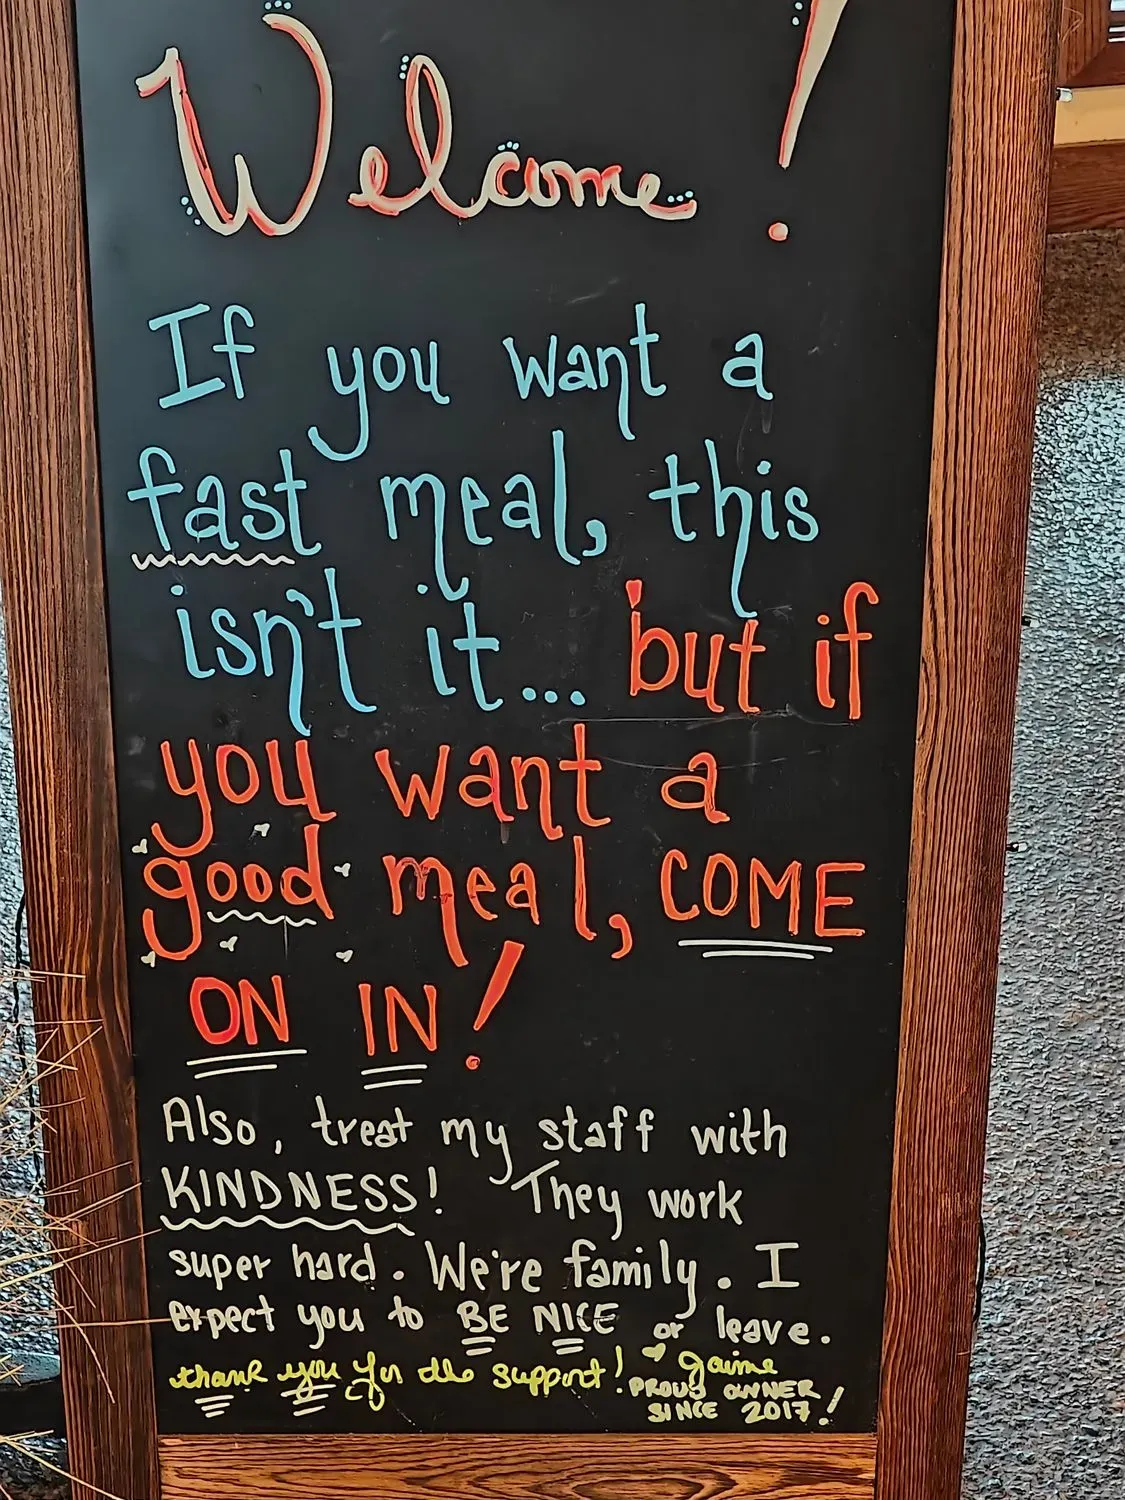 Welcome!
If you want a
fast meal, this
isn't it... but if
you want a
good meal, COME
ON IN!
Also, treat my staff with
KINDNESS! They work
super hard. We're family. I
expect you to BE NICE or leave.
thank you for the support! Jaime
PROUD OWNER
SINCE 2017!